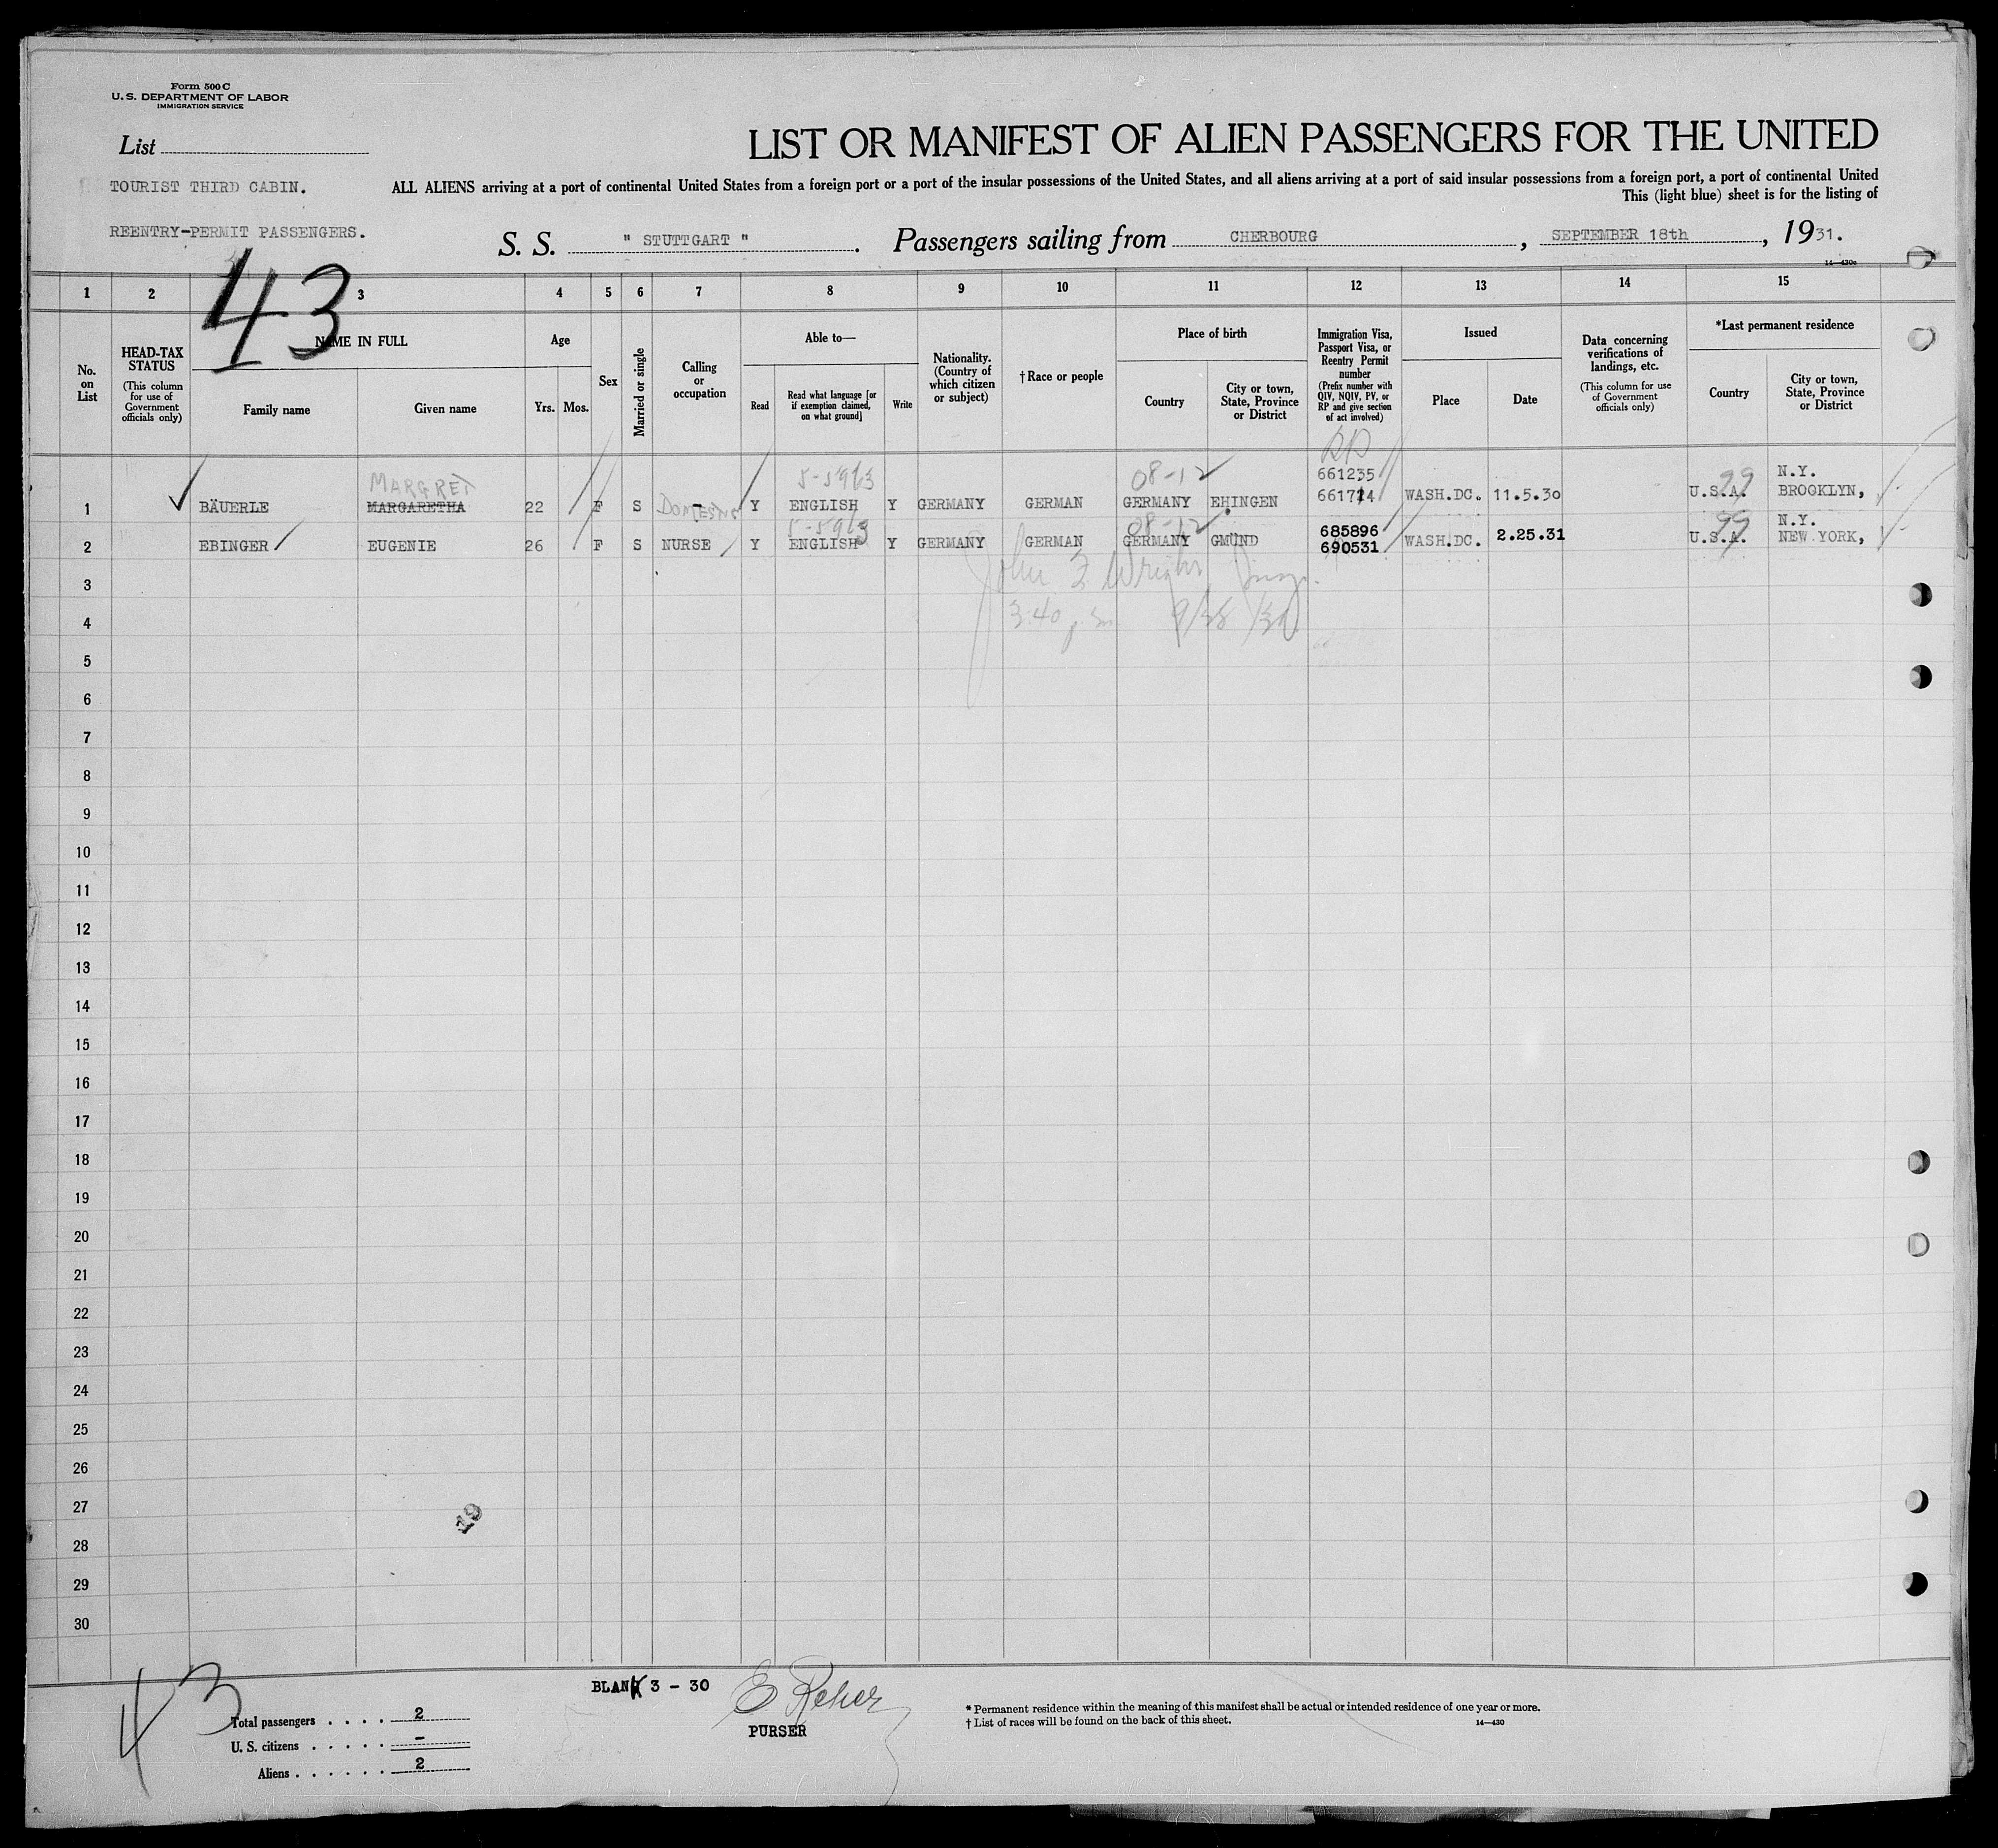 Form 500 C
U. S. DEPARTMENT OF LABOR
IMMIGRATION SERVICE
List
LIST OR MANIFEST OF ALIEN PASSENGERS FOR THE UNITED
TOURIST THIRD CABIN.
ALL ALIENS arriving at a port of continental United States from a foreign port or a port of the insular possessions of the United States, and all aliens arriving at a port of said insular possessions from a foreign port, a port of continental United
This (light blue) sheet is for the listing of
REENTRY-PERMIT PASSENGERS.
S. S. " STUTTGART ". Passengers sailing from CHERBOURG, SEPTEMBER 18th, 1931.
14—430c
43
1 2 3 4 5 6 7 8 9 10 11 12 13 14 15
No. on List
HEAD-TAX STATUS
(This column for use of Government officials only)
NAME IN FULL
Family name
Given name
Age
Yrs.
Mos.
Sex
Married or single
Calling or occupation
Able to—
Read
Read what language [or if exemption claimed, on what ground]
Write
Nationality. (Country of which citizen or subject)
† Race or people
Place of birth
Country
City or town, State, Province or District
Immigration Visa, Passport Visa, or Reentry Permit number
(Prefix number with QIV, NQIV, PV, or RP and give section of act involved)
Issued
Place
Date
Data concerning verifications of landings, etc.
(This column for use of Government officials only)
*Last permanent residence
Country
City or town, State, Province or District
RP
MARGRET 08-12 661235 99 N.Y.
1 BÄUERLE MARGARETHA 22 F S DOMESTIC Y ENGLISH Y GERMANY GERMAN GERMANY EHINGEN 661714 WASH.DC. 11.5.30 U.S.A. BROOKLYN,
08-12 685896 99 N.Y.
2 EBINGER EUGENIE 26 F S NURSE Y ENGLISH Y GERMANY GERMAN GERMANY GMÜND 690531 WASH.DC. 2.25.31 U.S.A. NEW YORK,
John Z Wright Insp.
3
3:40 p.m.
4
5
6
7
8
9
10
11
12
13
14
15
16
17
18
19
20
21
22
23
24
25
26
27
19
28
29
30
43
BLANK 3 - 30
E Reher
PURSER
Total passengers . . . . 2
U. S. citizens . . . . . -
Aliens . . . . . . 2
* Permanent residence within the meaning of this manifest shall be actual or intended residence of one year or more.
† List of races will be found on the back of this sheet.
14—430